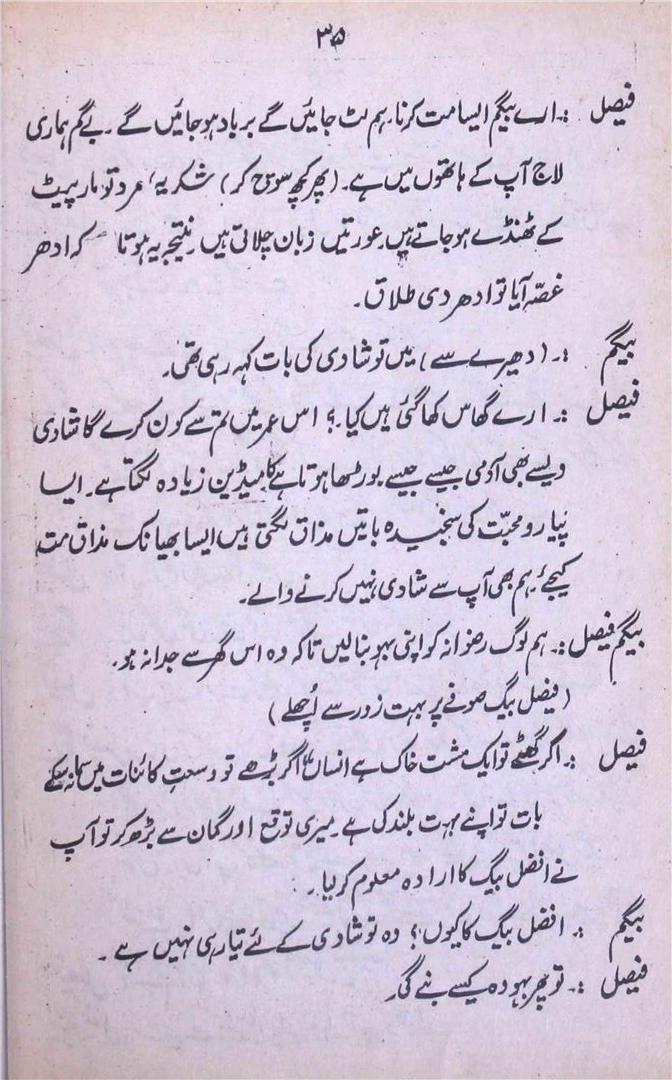 ۳۵
فیصل :۔ ارے بیگم ایسا مت کرنا۔ ہم لٹ جائیں گے برباد ہو جائیں گے۔ بیگم ہماری
لاج آپ کے ہاتھوں میں ہے۔ (پھر کچھ سوچ کر) شکریہ، مرد تو مار پیٹ
کے ٹھنڈے ہو جاتے ہیں۔ عورتیں زبان چلاتی ہیں۔ نتیجہ یہ ہوتا کہ ادھر
غصّہ آیا تو ادھر دی طلاق۔
بیگم :۔ (دھیرے سے) میں تو شادی کی بات کہہ رہی تھی۔
فیصل :۔ ارے گھاس کھا گئی ہیں کیا۔؟ اس عمر میں تم سے کون کرے گا شادی
ویسے بھی آدمی جیسے جیسے بوڑھا ہوتا ہے کامیڈین زیادہ لگتا ہے۔ ایسا
پیار و محبّت کی سنجیدہ باتیں مذاق لگتی ہیں ایسا بھیانک مذاق مت
کیجئے۔ ہم بھی آپ سے شادی نہیں کرنے والے۔
بیگم فیصل :۔ ہم لوگ رضوانہ کو اپنی بہو بنالیں تاکہ وہ اس گھر سے جدا نہ ہو۔
(فیصل بیگ صوفے پر بہت زور سے اُچھلے)
فیصل :۔ اگر گھٹے تو ایک مشت خاک ہے انساں اگر بڑھے تو وسعت کائنات میں سما نہ سکے
بات تو اپنے بہت بلند کی ہے۔ میری توقع اور گمان سے بڑھ کر تو آپ
نے افضل بیگ کا ارادہ معلوم کر لیا۔
بیگم :۔ افضل بیگ کا کیوں؟ وہ تو شادی کے لئے تیار ہی نہیں ہے۔
فیصل :۔ تو پھر بہو وہ کیسے بنے گی۔